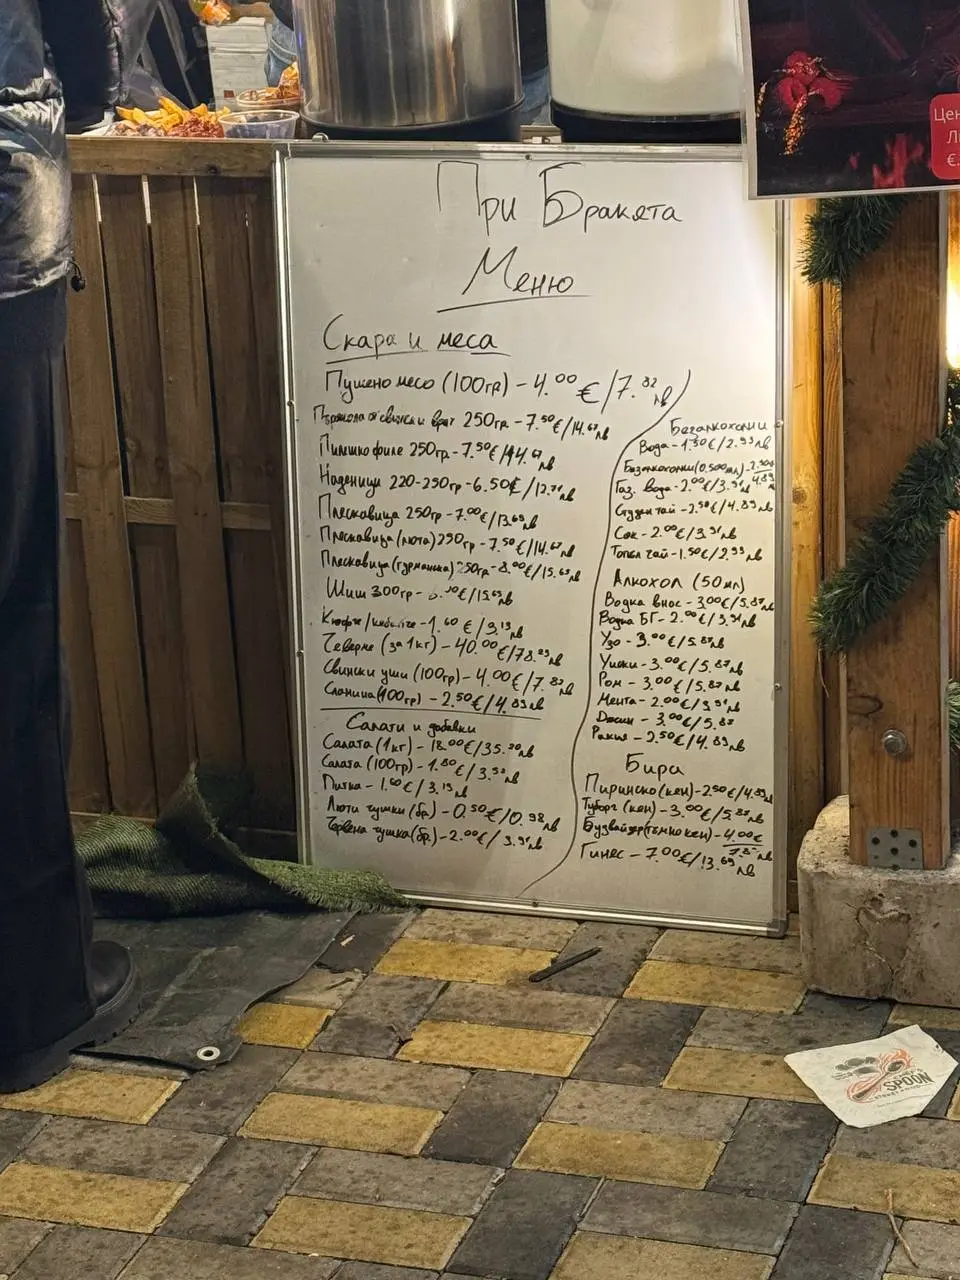 При Братята
Меню
Скара и меса
Пушено месо (100гр) - 4.00 €/7.82 лв
Пържола от свински врат 250гр - 7.50€/14.67лв
Пилешко филе 250гр - 7.50€/14.67 лв
Наденица 220-250гр - 6.50€/12.71 лв
Плескавица 250гр - 7.00€/13.69лв
Плескавица (люта) 250гр - 7.50€/14.67лв
Плескавица (гурманска) 250гр - 8.00€/15.65лв
Шиш 300гр - €/15.65лв
Кюфте/кебапче - 1.60 €/3.13лв
Теверме (за 1кг) - 40.00€/78.23лв
Свински уши (100гр) - 4.00€/7.82лв
Сланина (100гр) - 2.50€/4.89лв
Салати и добавки
Салата (1кг) - 18.00€/35.20лв
Салата (100гр) - 1.80€/3.52лв
Питка - 1.60€/3.13лв
Люти чушки (бр.) - 0.50€/0.98лв
Червена чушка (бр.) - 2.00€/3.91лв
Безалкохолни
Вода - 1.50€/2.93лв
Безалкохолни (0.500мл) - 2.50€
4.89
Газ. вода - 2.00€/3.91лв
Студен чай - 2.50€/4.89лв
Сок - 2.00€/3.91лв
Топъл чай - 1.50€/2.93лв
Алкохол (50мл)
Водка внос - 3.00€/5.87лв
Водка БГ - 2.00€/3.91лв
Узо - 3.00€/5.87лв
Уиски - 3.00€/5.87лв
Ром - 3.00€/5.87лв
Мента - 2.00€/3.91лв
Джин - 3.00€/5.87
Ракия - 2.50€/4.89лв
Бира
Пиринско (кен) - 2.50€/4.89лв
Туборг (кен) - 3.00€/5.87лв
Будвайзер (тъмно кен) - 4.00€
7.82 лв
Гинес - 7.00€/13.69лв
SPOON